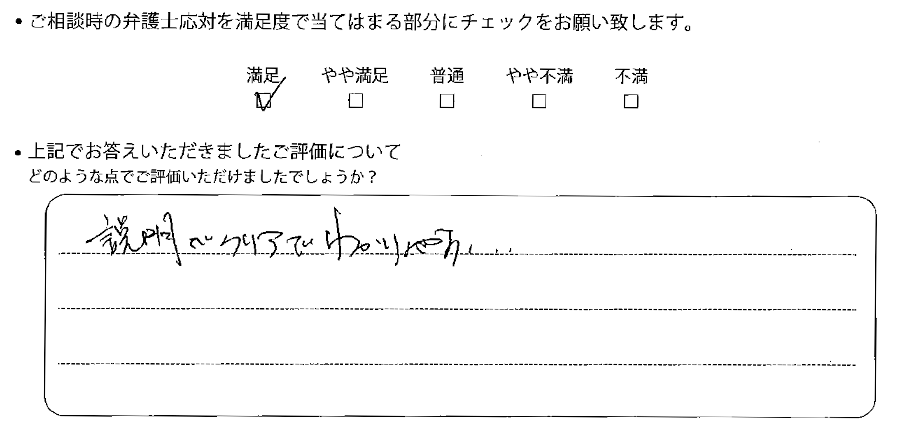 • ご相談時の弁護士応対を満足度で当てはまる部分にチェックをお願い致します。
満足 やや満足 普通 やや不満 不満
• 上記でお答えいただきましたご評価について
どのような点でご評価いただけましたでしょうか？
説明がクリアでわかりやすい...